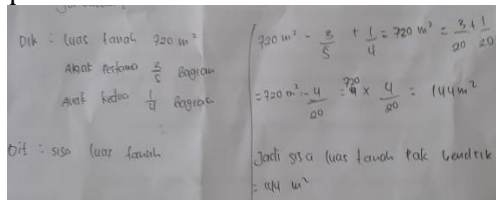 Dik : luas tanah 720 m²
Anak Pertama 3/5 Bagian
Anak kedua 1/4 Bagian
Dit : sisa luas tanah
720 m² - 3/5 + 1/4 = 720 m² = 3/20 + 1/20
= 720 m² - 4/20 = 720 × 4/20 = 144 m²
Jadi sisa luas tanah Pak Hendrik
= 144 m²